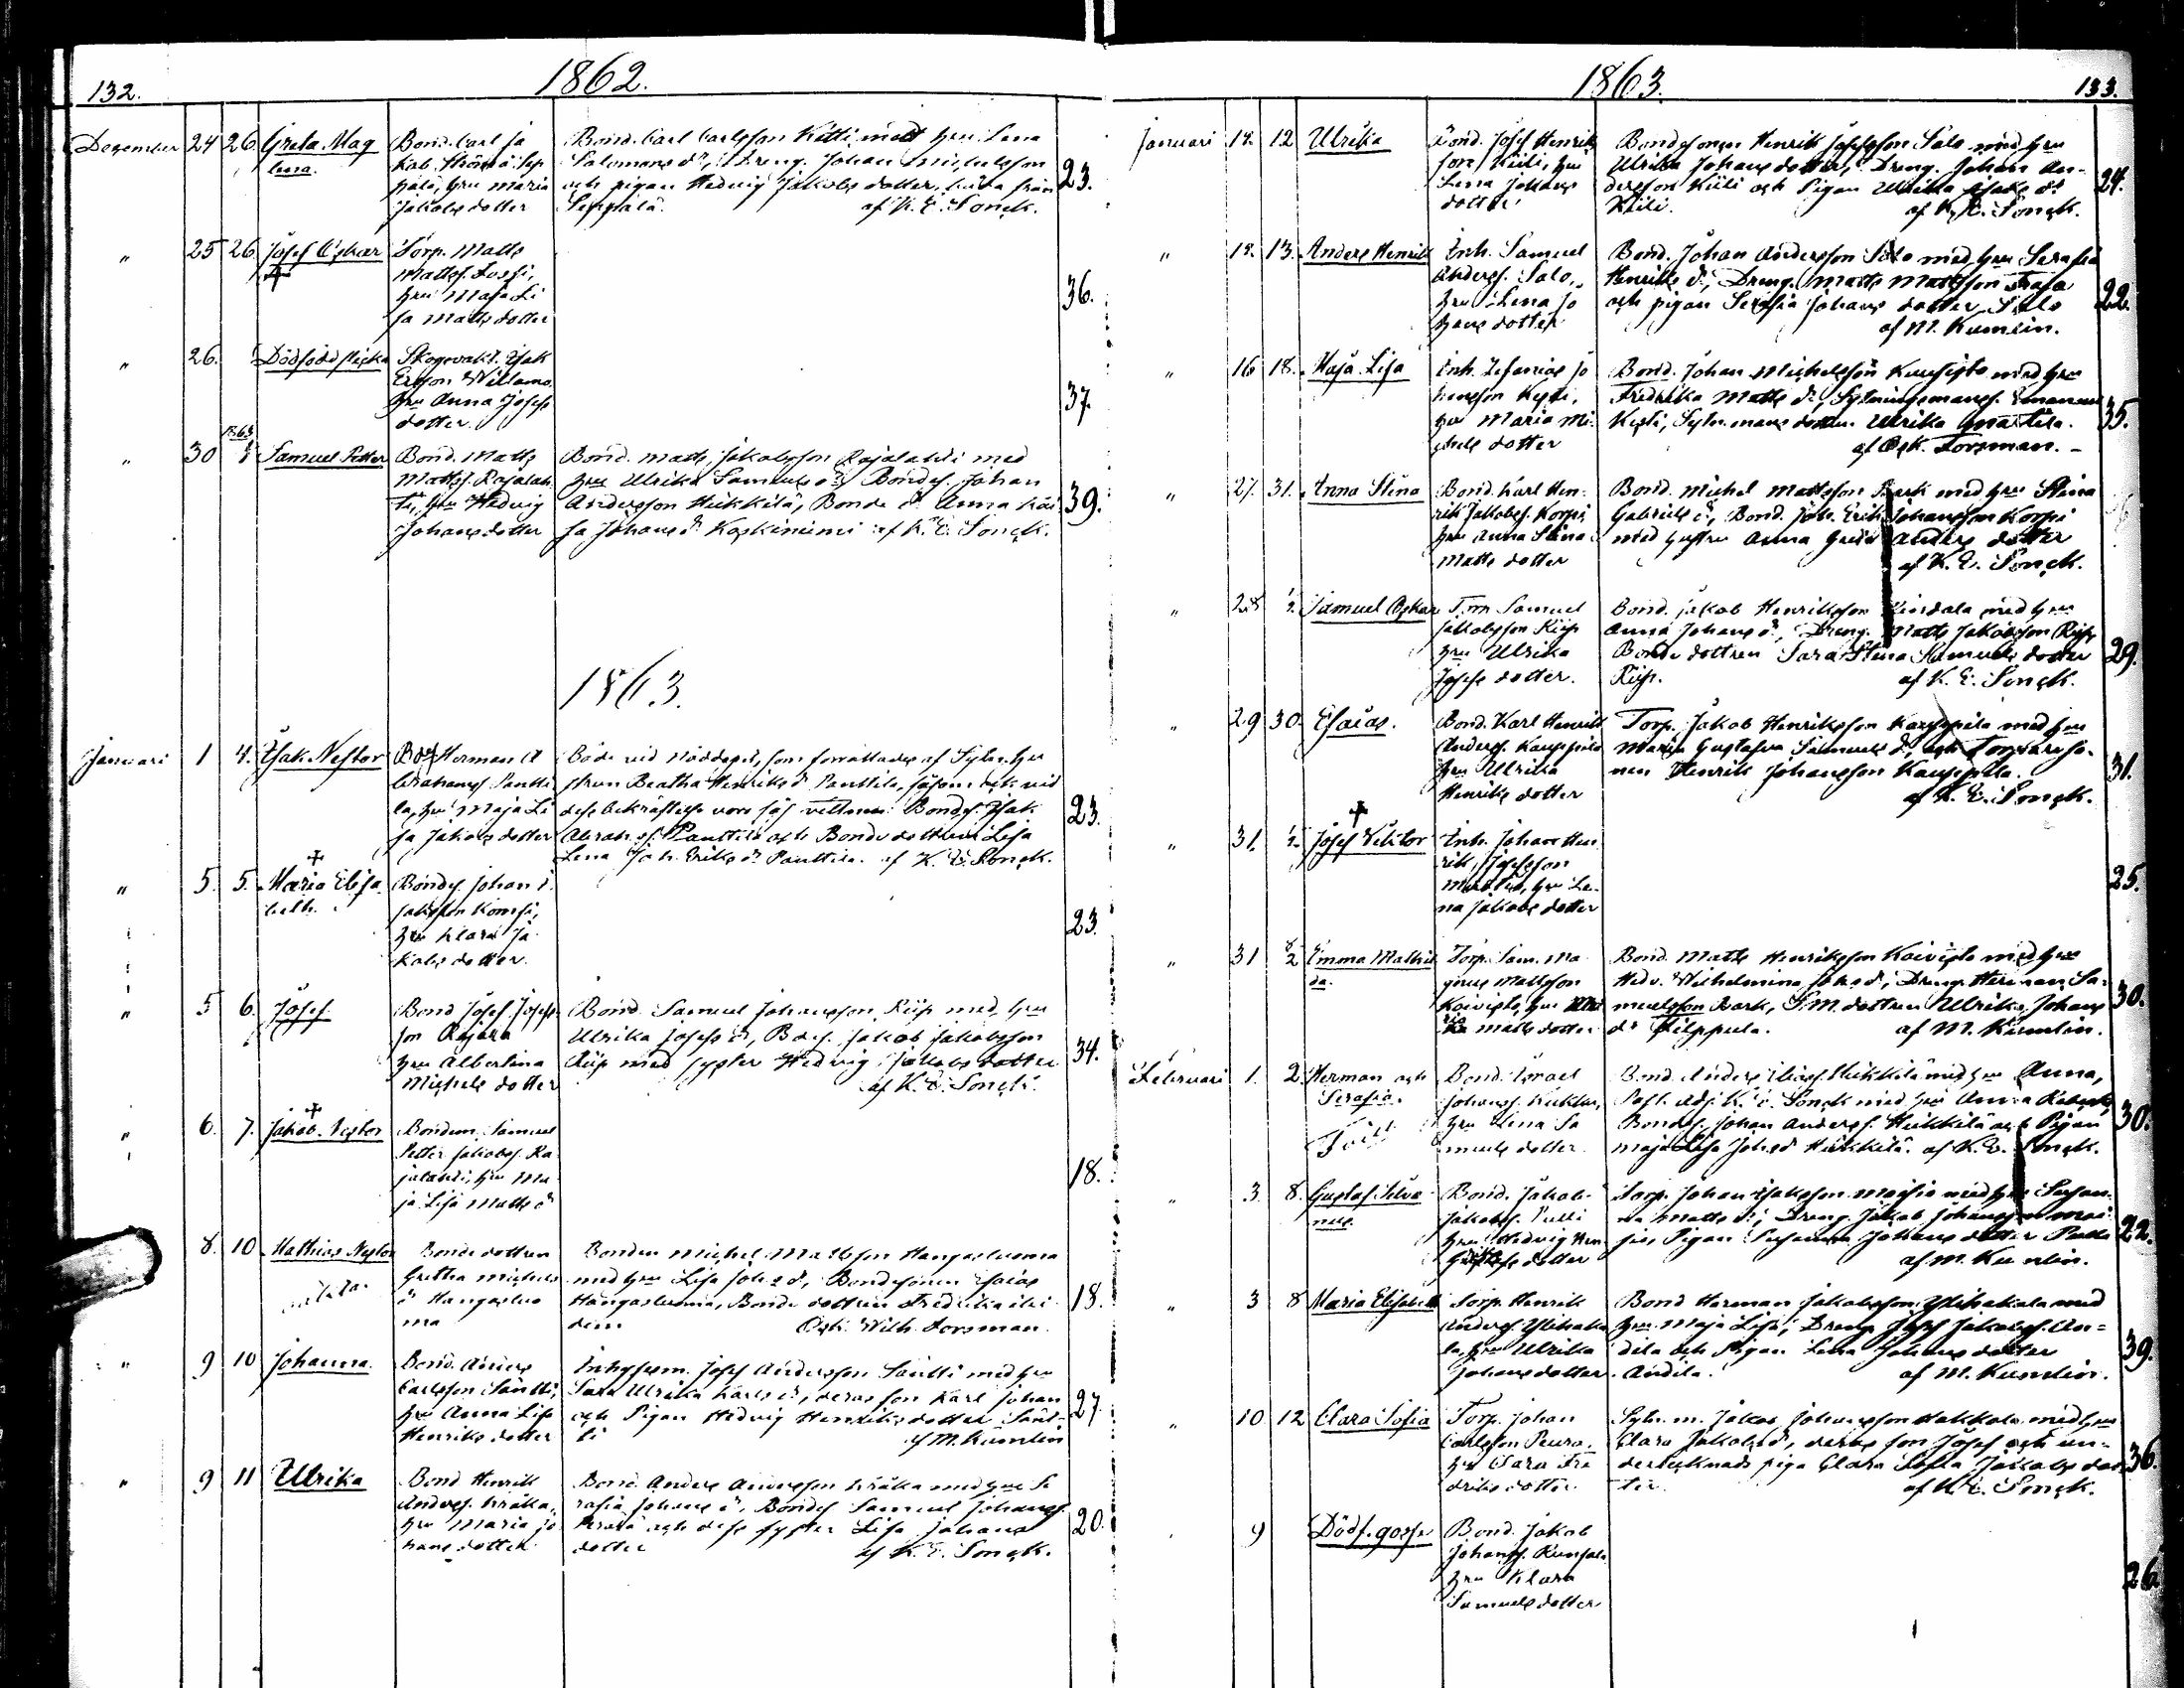 132.
1862.
December 24 26. Greta Mag
lena.
Bond. Carl Ja
kob. Strömsä. Sep
pälä, hru Maria
Jakobs dotter
Bond. Carl Carlsson Kitti med hru Lena
Salomons dr, Dreng. Johan Michelsson
och pigan Hedvig Jakobs dotter, båda från
Seppälä. af K. E. Sonck.
23.
" 25 26. Josef Oskar
Torp. Matts
Mattss.
hru Maja Li
sa Matts dotter
36.
" 26. Dödfödd flicka
Skogsvakt. Isak
Ersson Willamo
hru Anna Josefs
dotter.
37.
" 30 1863 1 Samuel Petter
Bond. Matts
Mattss. Rajalah
ti, hru Hedvig
Johans dotter
Bond. Matts Jakobsson Rajalahti med
hru Ulrika Samuels dr, Bondes. Johan
Andersson Heikkilä, Bonde dr Anna Kai
sa Johans dr Koskiniemi af K. E. Sonck.
39.
1863.
Januari 1 4. Isak Nestor
Bds Herman A
brahamss Pentti
la, hru Maja Li
sa Jakobs dotter
Böde vid nöddopet, som förrättades af Sytn. hu
strun Beatha Henriks dr Penttilä, såsom ock vid
dess bekräftelse voro som vittnen: Bondes. Isak
Abrah. s. Penttilä och Bonde dottren Lisa
Lena Joh. Eriks dr Penttilä. af K. E. Sonck.
23.
" 5. 5. Maria Elisa
beth.
Bondes. Johan I
saksson Komsi,
hru Klara Ja
kobs dotter.
23.
" 5 6. Josef
Bond Josef Josefs
son Rajala
hru Albertina
Michels dotter
Bond. Samuel Johansson Riip med hru
Ulrika Josefs dr, Bdes. Jakob Jakobsson
Riip med syster Hedvig Jakobs dotter
af K. E. Sonck.
34.
" 6. 7. Jakob Nestor
Bonden Samuel
Petter Jakobss. Ra
jalahti, hru Ma
ja Lisa Matts dr
18.
8. 10 Mathias Nestor
Bonde dottren
Gretha Michels
dr Hangasluo
ma
Bonden Michel Mattsson Hangasluoma
med hru Lisa Johs dr, Bondesonen Esaias
Hangasluoma, Bonde dottren Fredrika ibi
dem Osk. Wilh. Forsman.
18.
" 9 10 Johanna.
Bond. Anders
Carlsson Säntti,
hru Anna Lisa
Henriks dotter
Inhysesm. Josef Andersson Säntti med hru
Sara Ulrika Karls dr, deras son Karl Johan
och Pigan Hedvig Henriks dotter Sänt-
ti af M. Kumlin
27.
" 9 11 Ulrika
Bond Henrik
Anderss. Kråka,
hru Maria Jo
hans dotter
Bond. Anders Andersson Kråka med hru Se
rafia Johans dr, Bondes Samuel Johanss.
och dess syster Lisa Johans
dotter af K. E. Sonck.
20.
1863.
133.
Januari 12. 12 Ulrika
Bond. Josef Henriks
son Kiili, hru
Lena Johans
dotter
Bondesonen Henrik Josefsson Salo med hru
Ulrika Johans dotter, Dreng. Johan An-
dersson Kiili och Pigan Ulrika Isaks dr
Kiili. af K. E. Sonck.
24.
" 12. 13. Anders Henrik
Inh. Samuel
Anderss. Salo,
hru Lena Jo
hans dotter
Bond. Johan Andersson Salo med hru Serafia
Henriks dr, Dreng. Matts Mattsson
och pigan Serafia Johans dotter Salo
af M. Kumlin.
22.
" 16 18. Maja Lisa
Inh. Zefanias Jo
hansson Kysti,
hru Maria Mi
chels dotter
Bond. Johan Michelsson Kausisto med hru
Fredrika Matts dr, Sytningsmanss. Emanuel
Kysti, Sytn. mans dotter Ulrika
af Osk. Forsman.
35.
" 27. 31. Anna Stina
Bond. Karl Hen
rik Jakobss. Korpi,
hru Anna Stina
Matts dotter
Bond. Michel Mattsson Bark med hru Stina
Gabriels dr, Bond. Joh. Erik Johansson Korpi
med hustru Anna Greta Anders dotter
af K. E. Sonck.
" 28 1/2. Samuel Oskar
T.m Samuel
Jakobsson Riip
hru Ulrika
Josefs dotter.
Bond. Jakob Henriksson med hru
Anna Johans dr, Dreng. Matts Jakobsson Riip,
Bonde dottren Sara Stina Samuels dotter
Riip. af K. E. Sonck.
29.
" 29 30. Esaias.
Bond. Karl Henrik
Anderss. Kauppila
hru Ulrika
Henriks dotter
Torp. Jakob Henriksson Kauppila med hru
Maria Gustafva Samuels dr, och Torpareso-
nen Henrik Johansson Kauppila.
af K. E. Sonck.
31.
" 31. 1/2. Josef Viktor
Inh. Johan Hen
rik Josefsson
hru Le-
na Jakobs dotter
25.
" 31 8/2 Emma Mathil
da.
Torp. Sam. Ma
gnus Mattsson
Koivisto, hru Ulri
ka Matts dotter
Bond. Matts Henriksson Koivisto med hru
Hedv. Wilhelmina Johs dr, Dreng Herman Sa-
muelsson Bark, T.M. dottren Ulrika Johans
dr Filppula. af M. Kumlin.
30.
Februari 1. 2 Herman och
Serafia.
Bond. Israel
Johanss. Kukku,
hru Lena Sa
muels dotter.
Bond. Anders Eliass. Heikkilä med hru Anna,
Past. Adj. K. E. Sonck med hru Anna
Bondes. Johan Anderss. Heikkilä och Pigan
Maja Lisa Johs dr Heikkilä. af K. E. Sonck.
30.
" 3. 8. Gustaf Silva
nus.
Bond. Jakob
Jakobss. Pulli
hru Hedvig Hen
dotter
Torp. Johan Isaksson med hru Susan
na Matts dr, Dreng Jakob Johansson
Pigan Susanna Johans dotter
af M. Kumlin.
22.
" 3 8 Maria Elisabeth
Torp. Henrik
Anderss Ylihaka
la, hru Ulrika
Johans dotter.
Bond Herman Jakobsson Ylihakala med
hru Maja Lisa, Dreng Josef Jakobss. An-
dila och Pigan Lena Johans dotter
Andila. af M. Kumlin.
39.
" 10 12 Clara Sofia
Torp. Johan
Carlsson Peura,
hru Clara Fre
driks dotter
Sytn. m. Jakob Johansson Hakkola med hru
Clara Jakobs dr, deras son Josef och un-
dertecknads piga Clara Sofia Jakobs dot
ter. af K. E. Sonck.
36.
9 Dödf. gosse
Bond. Jakob
Johanss.
hru Klara
Samuels dotter
26